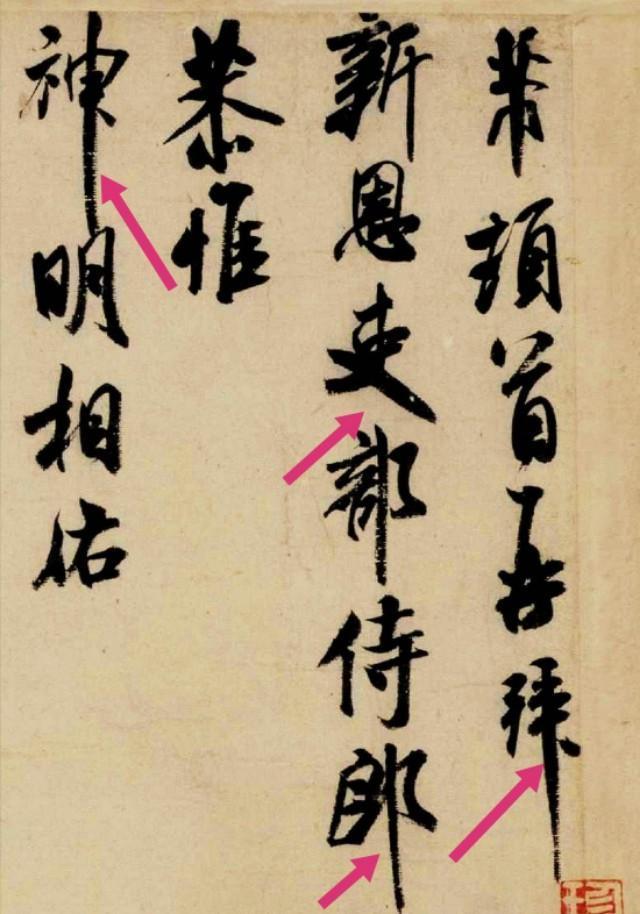 芾頓首再拜
新恩吏部侍郎
恭惟
神明相佑